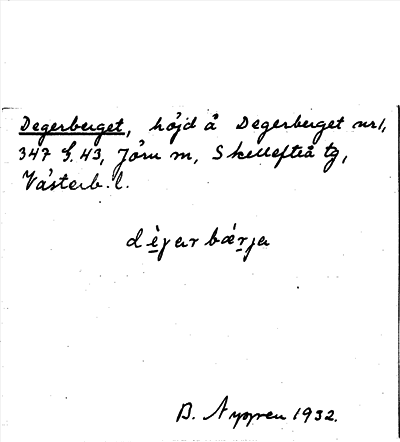 Degerberget, höjd å Degerberget nr 1,
347 G. 43, Jörn sn, Skellefteå tg,
Västerb. l.
dègarbǽrja
B. Nygren 1932.